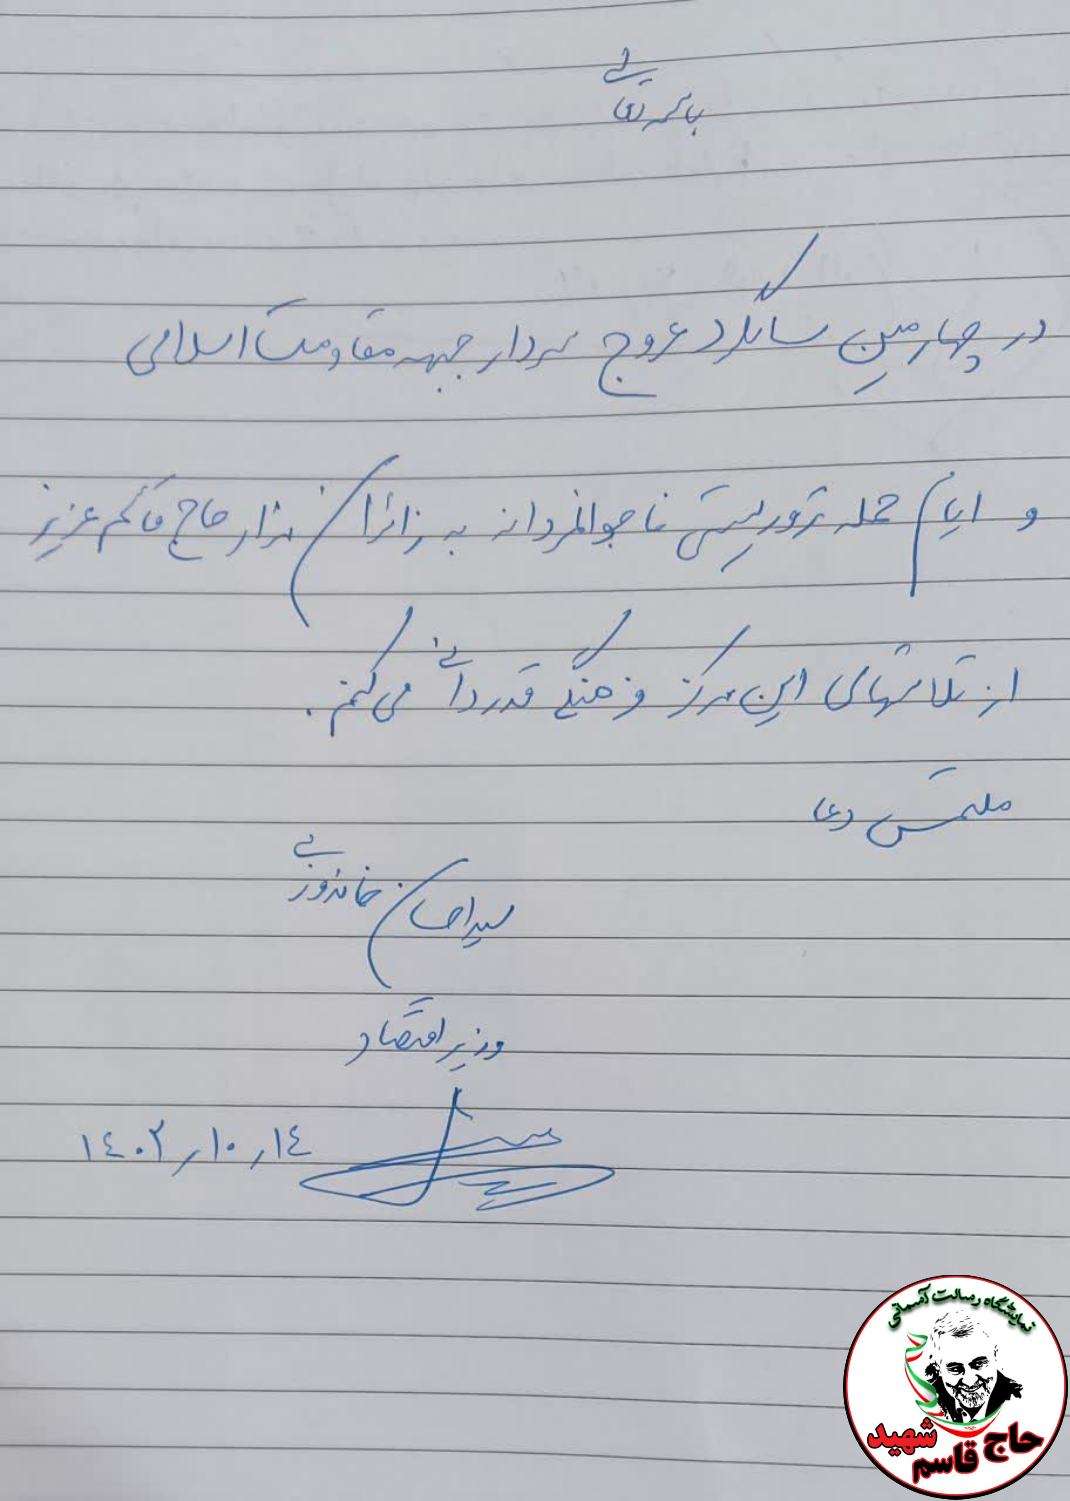 باسمه تعالی
در چهارمین سالگرد عروج سردار جبهه مقاومت اسلامی
و ایام حمله تروریستی ناجوانمردانه به زائران مزار حاج قاسم عزیز
از تلاشهای این مرکز فرهنگی قدردانی می‌کنم.
ملتمس دعا
سید احسان خاندوزی
وزیر اقتصاد
١٤٠٢٫١٠٫١٤
نمایشگاه رسالت آسمانی
شهید
حاج قاسم